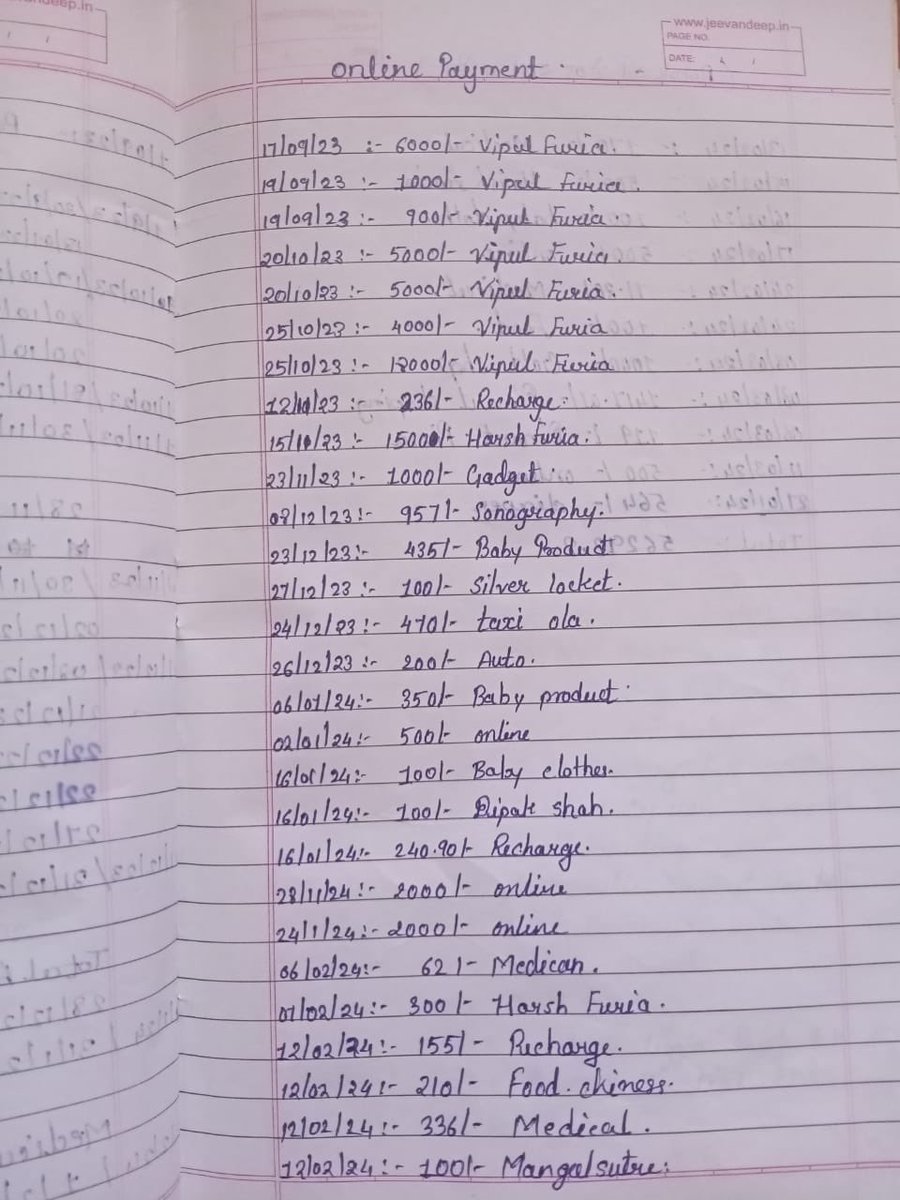 www.jeevandeep.in
PAGE NO.
DATE: / /
online Payment
17/09/23 :- 6000/- Vipul Furia.
19/09/23 :- 1000/- Vipul Furia.
19/09/23 :- 900/- Vipul Furia.
20/10/23 :- 5000/- Vipul Furia.
20/10/23 :- 5000/- Vipul Furia.
25/10/23 :- 4000/- Vipul Furia
25/10/23 :- Vipul Furia
:- 236/- Recharge.
:- Harsh Furia.
23/11/23 :- 1000/- Gadget.
08/12/23 :- 957/- Sonography.
23/12/23 :- 435/- Baby Product
27/12/23 :- 100/- Silver locket.
24/12/23 :- 470/- taxi ola.
26/12/23 :- 200/- Auto.
06/01/24 :- 350/- Baby product.
02/01/24 :- 500/- online
16/01/24 :- 100/- Baby clothes.
16/01/24 :- 100/- Dipak shah.
16/01/24 :- 240.90/- Recharge.
28/11/24 :- 2000/- online
24/1/24 :- 2000/- online
06/02/24 :- 62/- Medican.
07/02/24 :- 300/- Harsh Furia.
12/02/24 :- 155/- Recharge.
12/02/24 :- 210/- Food. chiness.
12/02/24 :- 336/- Medical.
12/02/24 :- 100/- Mangalsutre.